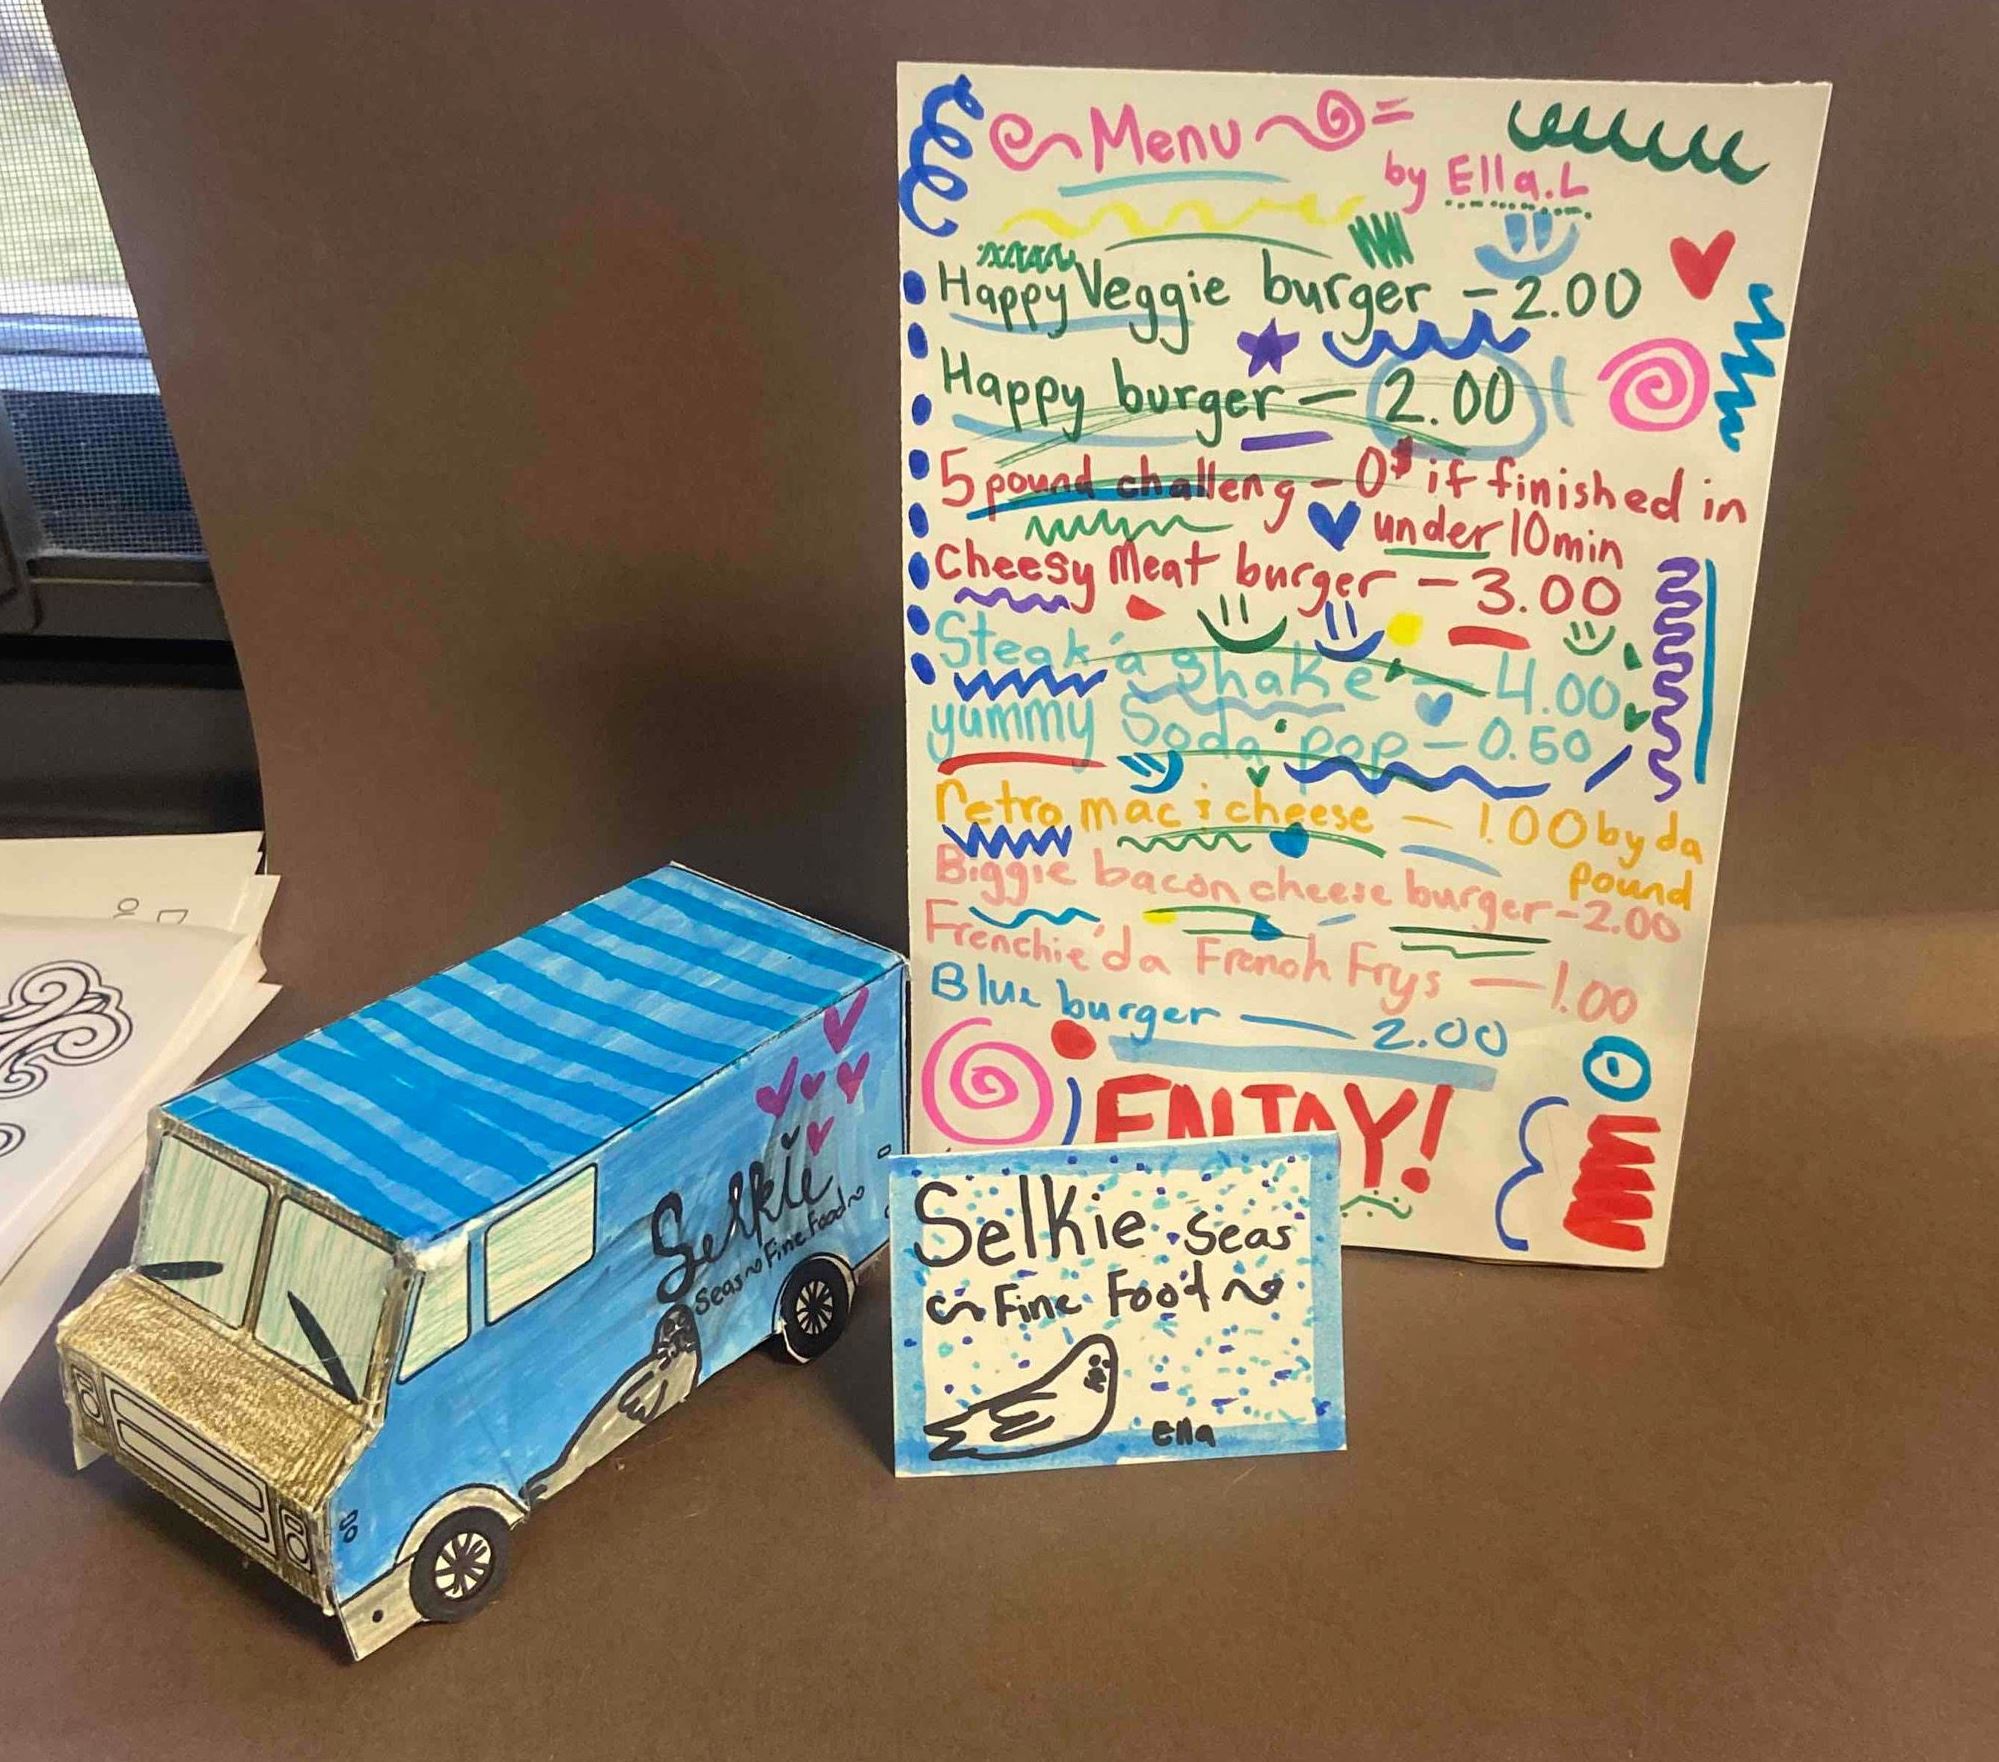 Menu =
by Ella.L
Happy Veggie burger - 2.00
Happy burger - 2.00
5 pound challeng - 0$ if finished in
under 10min
Cheesy Meat burger - 3.00
Steak 'a shake' - 4.00
yummy Soda pop - 0.50
retro mac & cheese - 1.00 by da
pound
Biggie bacon cheese burger - 2.00
Frenchie'da French Frys - 1.00
Blue burger - 2.00
ENJOY!
Selkie
Seas ~ Fine Food ~
Selkie Seas
~ Fine Food ~
Ella